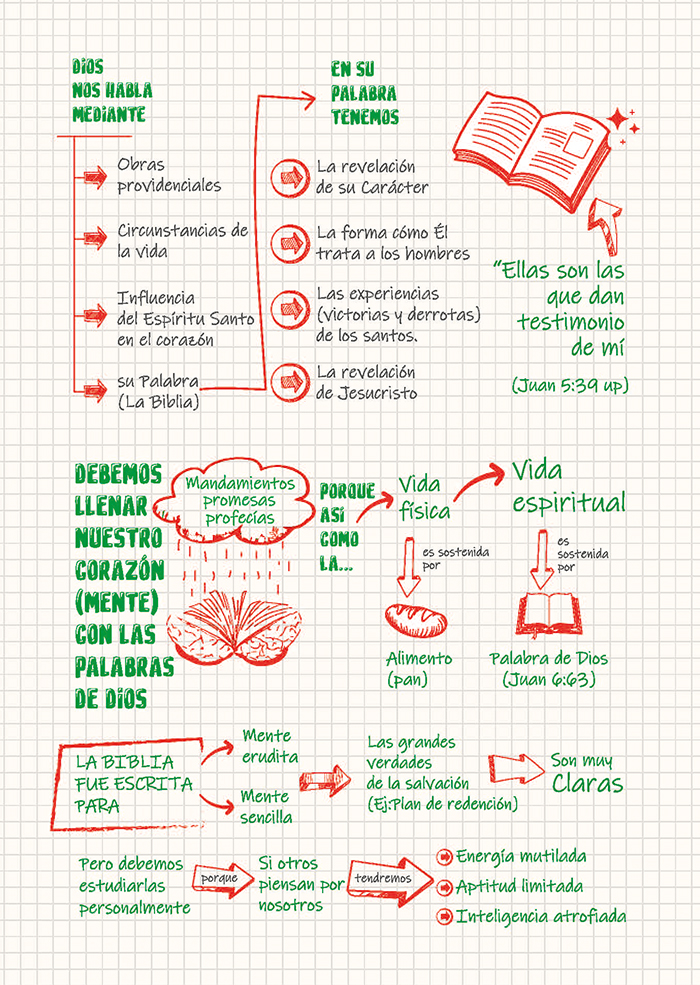 DIOS
NOS HABLA
MEDIANTE
Obras
providenciales
Circunstancias de
la vida
Influencia
del Espíritu Santo
en el corazón
su Palabra
(La Biblia)
EN SU
PALABRA
TENEMOS
La revelación
de su Carácter
La forma cómo Él
trata a los hombres
Las experiencias
(victorias y derrotas)
de los santos.
La revelación
de Jesucristo
"Ellas son las
que dan
testimonio
de mí
(Juan 5:39 up)
DEBEMOS
LLENAR
NUESTRO
CORAZÓN
(MENTE)
CON LAS
PALABRAS
DE DIOS
Mandamientos
promesas
profecías
PORQUE
ASÍ
COMO
LA...
Vida
física
es sostenida
por
Alimento
(pan)
Vida
espiritual
es
sostenida
por
Palabra de Dios
(Juan 6:63)
LA BIBLIA
FUE ESCRITA
PARA
Mente
erudita
Mente
sencilla
Las grandes
verdades
de la salvación
(Ej:Plan de redención)
Son muy
Claras
Pero debemos
estudiarlas
personalmente
porque
Si otros
piensan por
nosotros
tendremos
Energía mutilada
Aptitud limitada
Inteligencia atrofiada